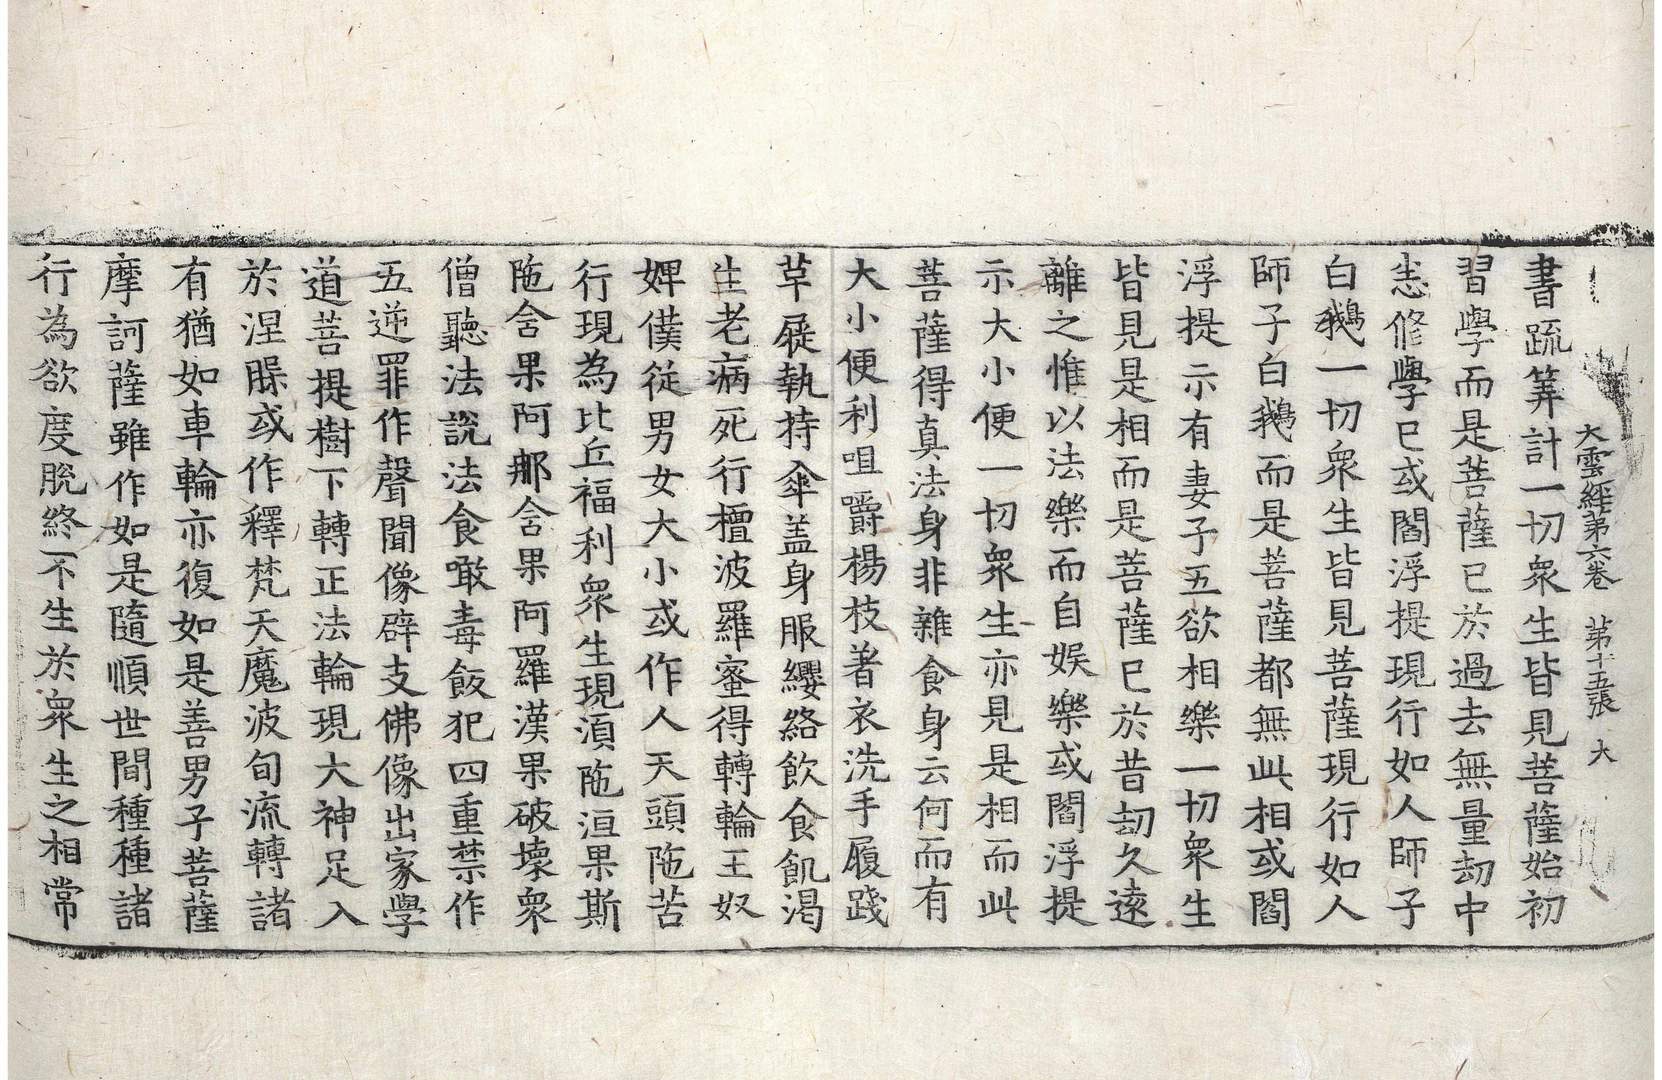 大雲經第六卷 第十五張 大
書疏筭計一切衆生皆見菩薩始初
習學而是菩薩已於過去無量劫中
悉修學已或閻浮提現行如人師子
白鵝一切衆生皆見菩薩現行如人
師子白鵝而是菩薩都無此相或閻
浮提示有妻子五欲相樂一切衆生
皆見是相而是菩薩已於昔劫久遠
離之惟以法樂而自娛樂或閻浮提
示大小便一切衆生亦見是相而此
菩薩得真法身非雜食身云何而有
大小便利咀嚼楊枝著衣洗手履踐
草屣執持傘盖身服纓絡飲食飢渴
生老病死行檀波羅蜜得轉輪王奴
婢僕從男女大小或作人天頭陁苦
行現為比丘福利衆生現湏陁洹果斯
陁含果阿那含果阿羅漢果破壞衆
僧聽法說法食噉毒飯犯四重禁作
五逆罪作聲聞像辟支佛像出家學
道菩提樹下轉正法輪現大神足入
於涅槃或作釋梵天魔波旬流轉諸
有猶如車輪亦復如是善男子菩薩
摩訶薩雖作如是隨順世間種種諸
行為欲度脫終不生於衆生之相常